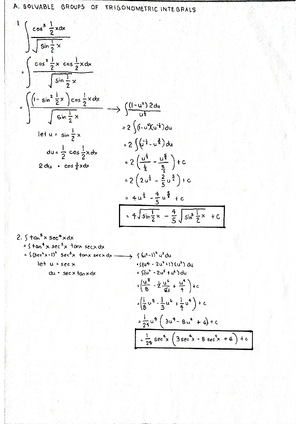 A. SOLVABLE GROUPS OF TRIGONOMETRIC INTEGRALS
1. ∫ cos³ ½x dx / √(sin ½x)
= ∫ cos² ½x cos ½x dx / √(sin ½x)
= ∫ (1 - sin² ½x) cos ½x dx / √(sin ½x)
let u = sin ½x
du = ½ cos ½x dx
2du = cos ½x dx
→ ∫ (1-u²) 2du / u^½
= 2 ∫ (1-u²)(u^-½) du
= 2 ∫ (u^-½ - u^3/2) du
= 2 (u^½/½ - u^5/2/5/2) + C
= 2 (2u^½ - 2/5 u^5/2) + C
= 4u^½ - 4/5 u^5/2 + C
= 4√(sin ½x) - 4/5 √(sin⁵ ½x) + C
2. ∫ tan⁵x sec⁴x dx
= ∫ tan⁴x sec³x tanx secx dx
= ∫ (sec²x-1)² sec³x tanx secx dx
let u = secx
du = secx tanx dx
→ ∫ (u²-1)² u³ du
= ∫ (u⁴ - 2u² + 1)(u³) du
= ∫ (u⁷ - 2u⁵ + u³) du
= (u⁸/8 - 2u⁶/6 + u⁴/4) + C
= (1/8 u⁸ - 1/3 u⁶ + 1/4 u⁴) + C
= 1/24 u⁴ (3u⁴ - 8u² + 6) + C
= 1/24 sec⁴x (3sec⁴x - 8 sec²x + 6) + C